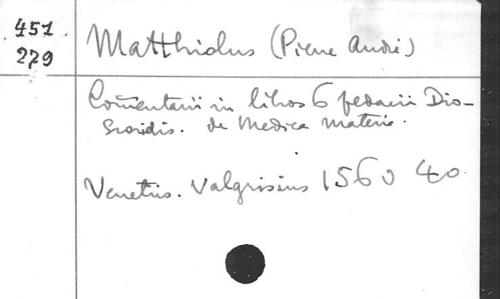 451
279
Matthiolus (Pierre André)
Com̃entarii in libros 6 pedacii Dio-
scoridis. de Medica materie.
Venetiis. Valgrisius 1560 4o.